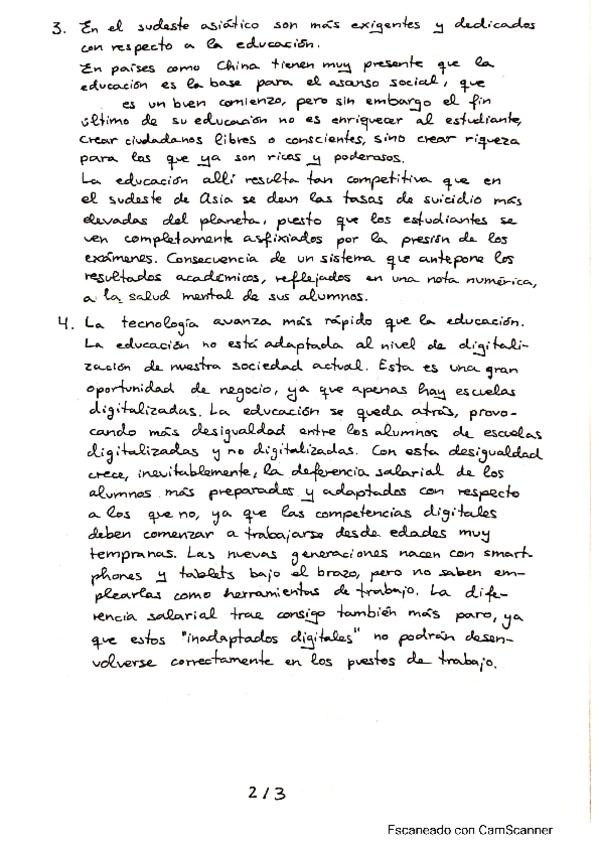 3. En el sudeste asiático son más exigentes y dedicados
con respecto a la educación.
En países como China tienen muy presente que la
educación es la base para el asanso social, que
es un buen comienzo, pero sin embargo el fin
último de su educación no es enriquecer al estudiante,
crear ciudadanos libres o conscientes, sino crear riqueza
para los que ya son ricos y poderosos.
La educación allí resulta tan competitiva que en
el sudeste de Asia se dan las tasas de suicidio más
elevadas del planeta, puesto que los estudiantes se
ven completamente asfixiados por la presión de los
exámenes. Consecuencia de un sistema que antepone los
resultados académicos, reflejados en una nota numérica,
a la salud mental de sus alumnos.
4. La tecnología avanza más rápido que la educación.
La educación no está adaptada al nivel de digitali-
zación de nuestra sociedad actual. Esta es una gran
oportunidad de negocio, ya que apenas hay escuelas
digitalizadas. La educación se queda atrás, provo-
cando más desigualdad entre los alumnos de escuelas
digitalizadas y no digitalizadas. Con esta desigualdad
crece, inevitablemente, la deferencia salarial de los
alumnos más preparados y adaptados con respecto
a los que no, ya que las competencias digitales
deben comenzar a trabajarse desde edades muy
tempranas. Las nuevas generaciones nacen con smart-
phones y tablets bajo el brazo, pero no saben em-
plearlas como herramientas de trabajo. La dife-
rencia salarial trae consigo también más paro, ya
que estos "inadaptados digitales" no podrán desen-
volverse correctamente en los puestos de trabajo.
2/3
Escaneado con CamScanner